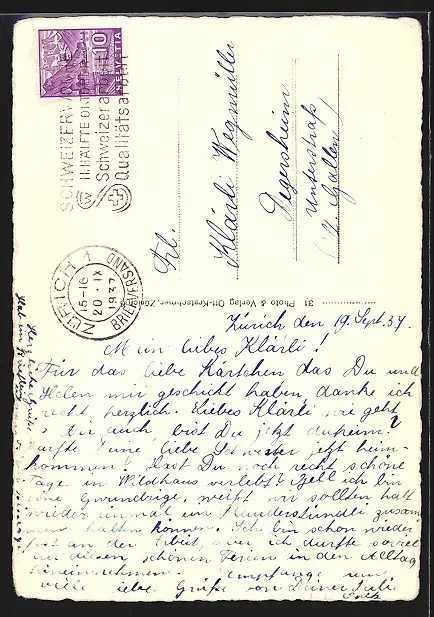 HELVETIA
10
SCHWEIZERWOCHE
II. HÄLFTE OKT
Schweizerarbeit
Qualitätsarbeit
ZÜRICH 1
15-16
20 · IX
1937
BRIEFVERSAND
Frl.
Klärli Wegmüller
Degersheim
Unterstraß
(St. Gallen)
31 Photo & Verlag Ott-Kretschmer, Zürich
Zürich den 19. Sept. 37.
Mein liebes Klärli!
Für das liebe Kärtchen das Du und
Helen mir geschickt haben, danke ich
recht herzlich. Liebes Klärli wie geht
es Dir auch, bist Du jetzt daheim?
Durfte Deine liebe Schwester jetzt heim-
kommen? Hast Du noch recht schöne
Tage in Wildhaus verlebt? Gell ich bin
eine, weißt wir sollten halt
wieder einmal ein Plauderstündli zusam
men halten können. Ich bin schon wieder
fest an der Arbeit, aber ich durfte soviel
aus diesen schönen Ferien in den Alltag
hineinnehmen. Empfange nun
viele liebe Grüße von Deiner Luli
Herzliche Grüße